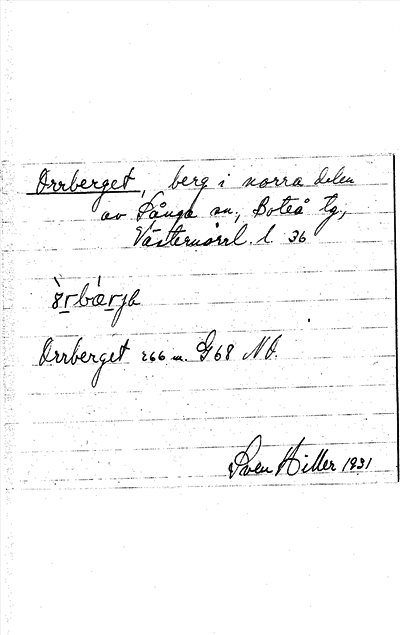 Orrberget, berg i norra delen
av Sånga sn, Boteå tg,
Västernorrl. l. 36
Orrberget 266 m. G68 NO.
Sven Hiller 1931